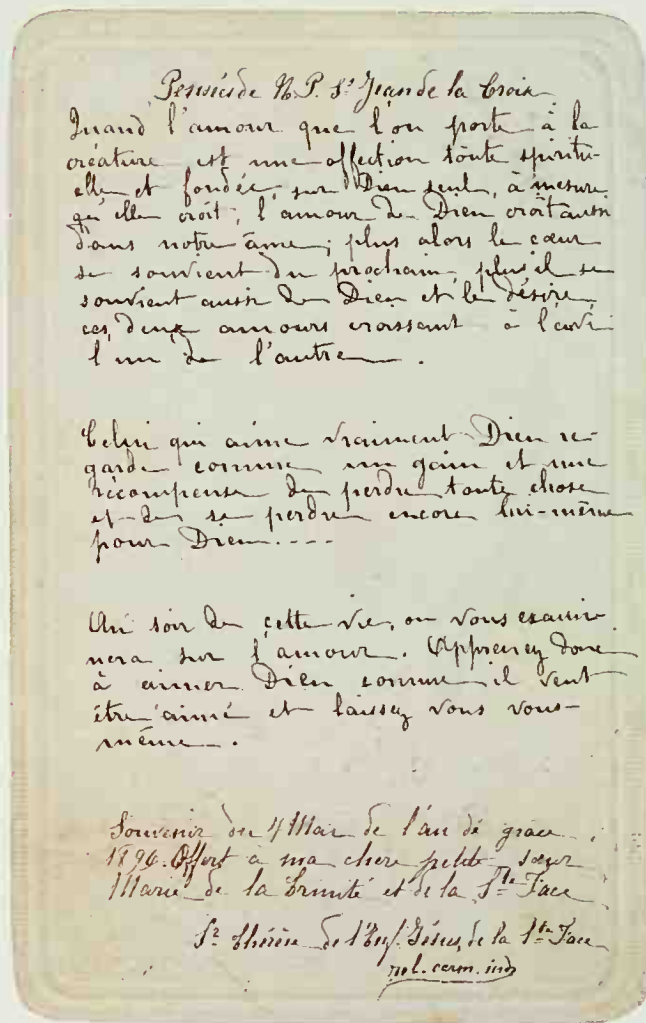 Pensées de N. P. St Jean de la Croix
Quand l'amour que l'on porte à la
créature est une affection toute spiritu-
elle et fondée sur Dieu seul, à mesure
qu'elle croît, l'amour de Dieu croît aussi
dans notre âme; plus alors le cœur
se souvient du prochain, plus il se
souvient aussi de Dieu et le désire,
ces deux amours croissant à l'envi
l'un de l'autre.
Celui qui aime vraiment Dieu re-
garde comme un gain et une
récompense de perdre toute chose
et de se perdre encore lui-même
pour Dieu....
Au soir de cette vie, on vous exami-
nera sur l'amour. Apprenez donc
à aimer Dieu comme il veut
être aimé et laissez vous vous-
même.
Souvenir du 4 Mai de l'an de grâce
1896. Offert à ma chère petite sœur
Marie de la Trinité et de la Ste Face
Sr Thérèse de l'Enf. Jésus, de la Ste Face
rel. carm. ind